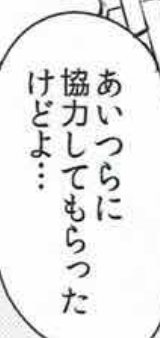 あいつらに
協力してもらった
けどよ…